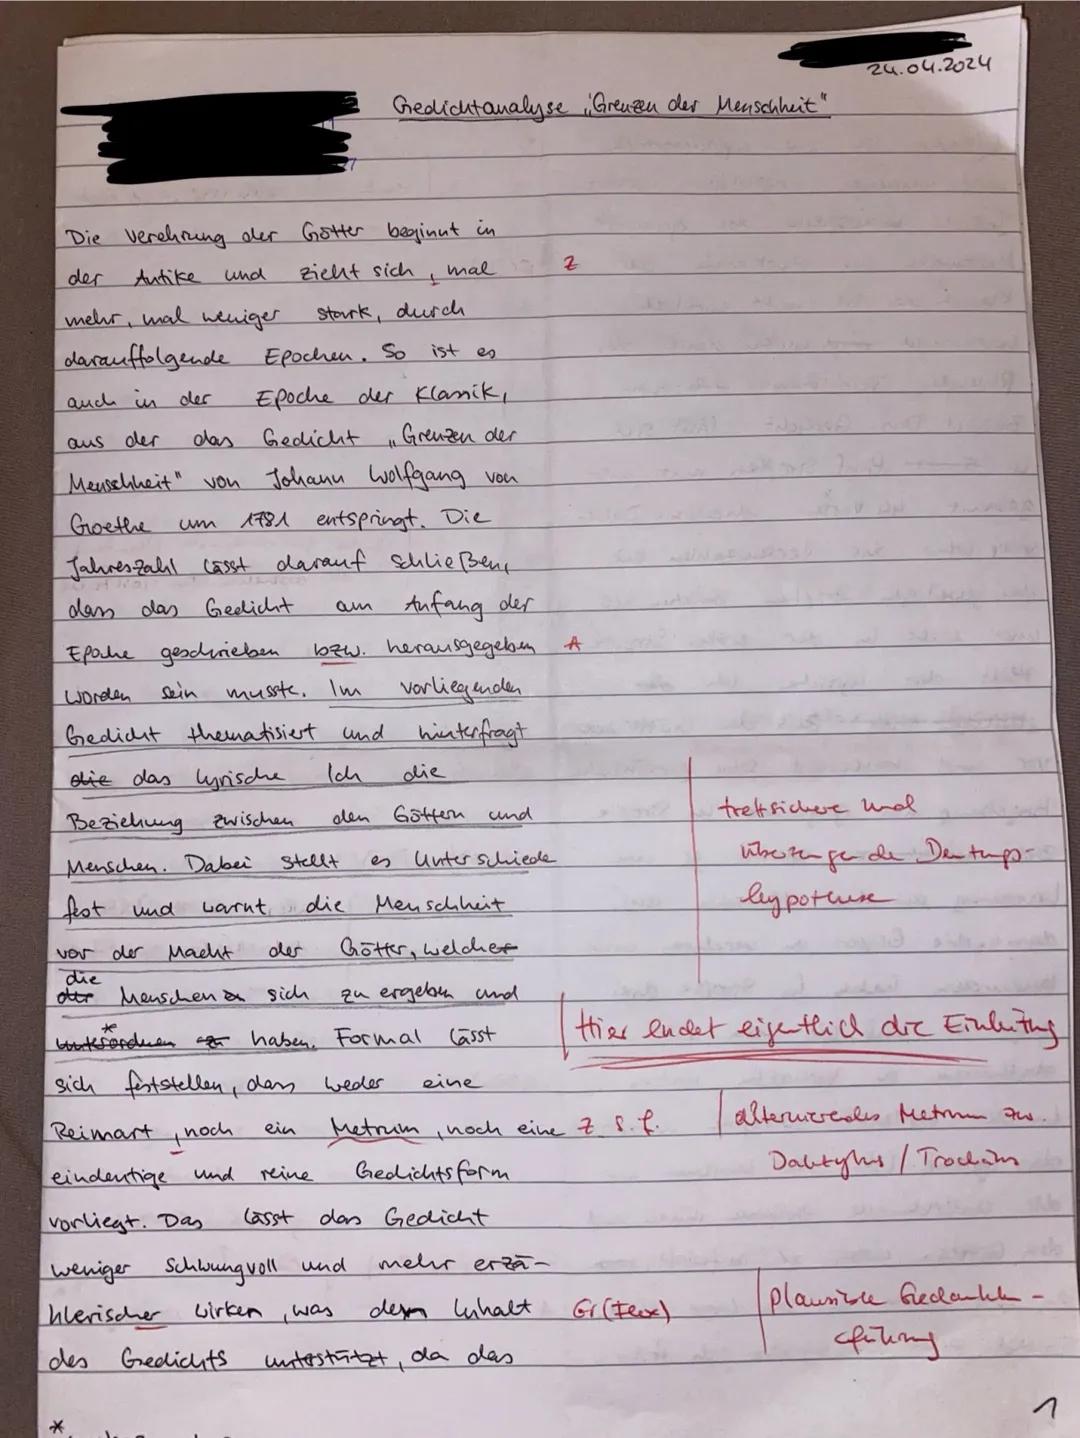 24.04.2024
Gedichtanalyse „Grenzen der Menschheit"
Die Verehrung der Götter beginnt in
der Antike und zieht sich, mal Z
mehr, mal weniger stark, durch
darauffolgende Epochen. So ist es
auch in der Epoche der Klassik,
aus der das Gedicht „Grenzen der
Menschheit" von Johann Wolfgang von
Goethe um 1781 entspringt. Die
Jahreszahl lässt darauf schließen,
dass das Gedicht am Anfang der
Epoche geschrieben bzw. herausgegeben A
worden sein musste. Im vorliegenden
Gedicht thematisiert und hinterfragt
die das lyrische Ich die
Beziehung zwischen den Göttern und
Menschen. Dabei stellt es Unterschiede
fest und warnt die Menschheit
vor der Macht der Götter, welcher
die
Menschen sich zu ergeben und
* unterordnen haben. Formal lässt
sich feststellen, dass weder eine
Reimart, noch ein Metrum, noch eine Z s. f.
eindeutige und reine Gedichtsform
vorliegt. Das lässt das Gedicht
weniger schwungvoll und mehr erzä-
hlerischer wirken, was dem Inhalt Gr (Flex)
des Gedichts unterstützt, da das
*
treffsichere und
überzeugende Deutungs-
hypothese
Hier endet eigentlich die Einleitung
alternierendes Metrum zw.
Daktylus / Trochäus
plausible Gedanken-
führung
1